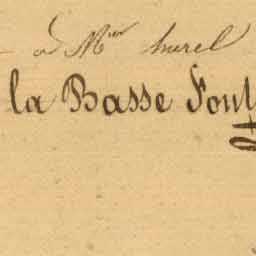 à Mr hurel
la Basse Font